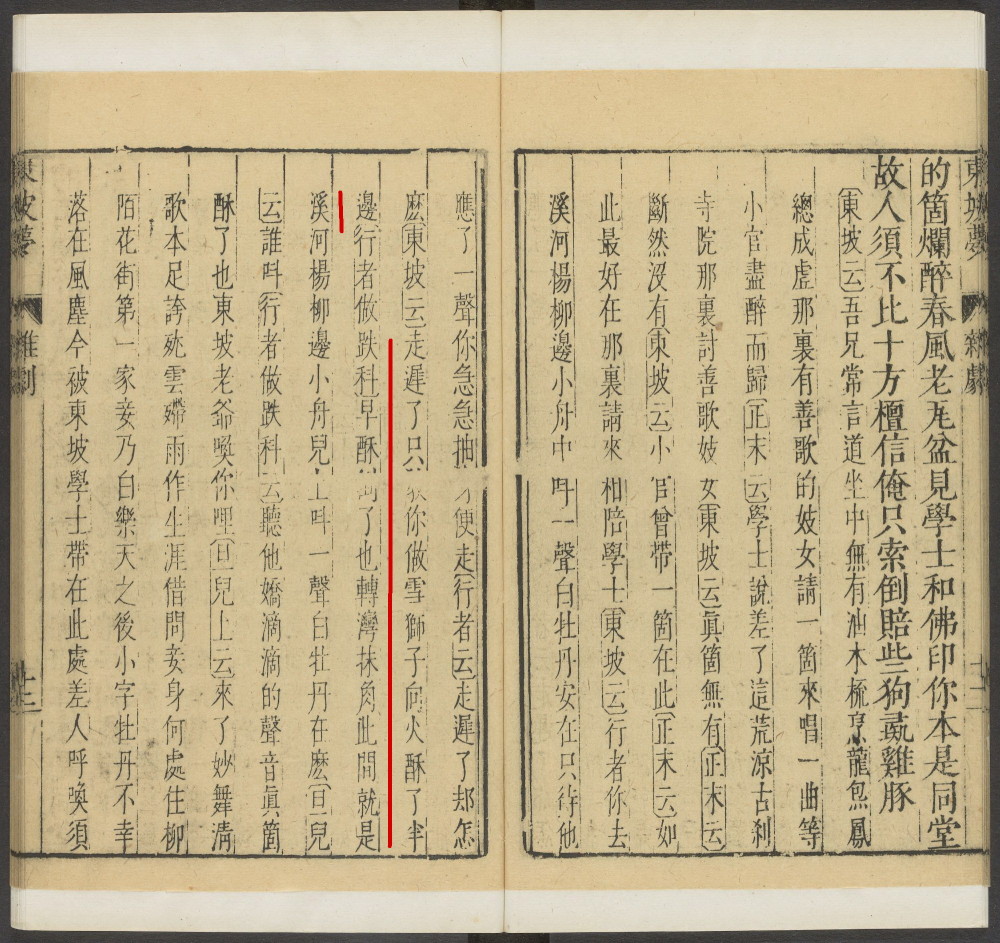 東坡夢 雜劇 十二
的箇爛醉春風老瓦盆見學士和佛印你本是同堂
故人須不比十方檀信俺只索倒賠些狗彘雞豚
東坡云吾兄常言道坐中無有油木梳烹龍炰鳳
總成虛那裏有善歌的妓女請一箇來唱一曲等
小官盡醉而歸正末云學士說差了這荒凉古刹
寺院那裏討善歌妓女東坡云眞箇無有正末云
斷然沒有東坡云小官曾帶一箇在此正末云如
此最好在那裏請來相陪學士東坡云行者你去
溪河楊柳邊小舟中呌一聲白牡丹安在只待他
應了一聲你急急抽身便走行者云走遲了却怎
麽東坡云走遲了只教你做雪獅子向火酥了半
邊行者做跌科早酥倒了也轉灣抹角此間就是
溪河楊柳邊小舟兒上呌一聲白牡丹在麽旦兒
云誰呌行者做跌科云聽他嬌滴滴的聲音眞箇
酥了也東坡老爺喚你哩旦兒上云來了妙舞淸
歌本足誇殢雲㛍雨作生涯借問妾身何處住柳
陌花街第一家妾乃白樂天之後小字牡丹不幸
落在風塵今被東坡學士帶在此處差人呼喚須
東坡夢 雜劇 十二